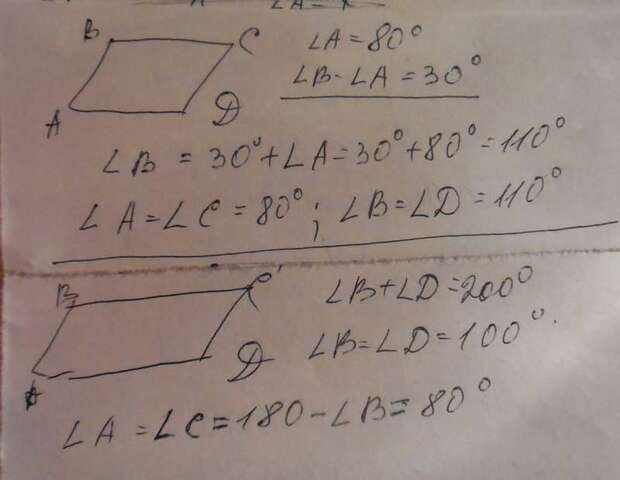 B C
∠A = 80°
∠B - ∠A = 30°
A D
∠B = 30° + ∠A = 30° + 80° = 110°
∠A = ∠C = 80° ; ∠B = ∠D = 110°
B C
∠B + ∠D = 200°
∠B = ∠D = 100°.
A D
∠A = ∠C = 180 - ∠B = 80°